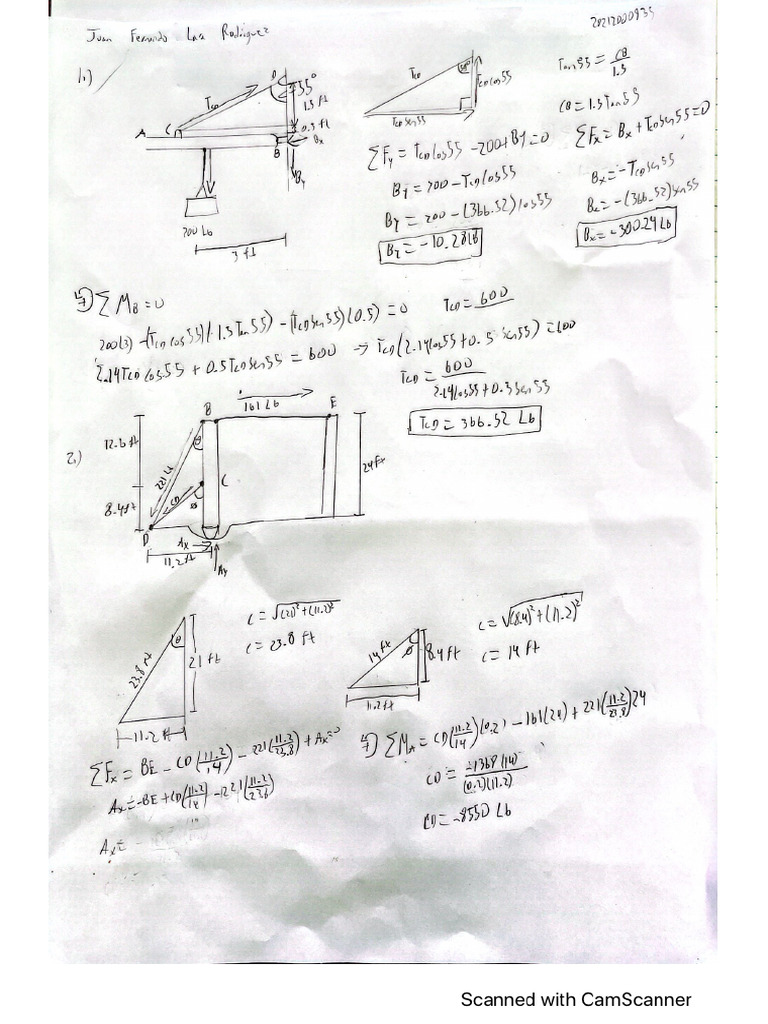 Juan Fernando Lara Rodriguez
20212000935
1.)
D
55°
1.5 ft
T_CD
C
0.5 ft
A
B_x
B
B_y
200 Lb
3 ft
T_CD
55°
T_CD cos55
T_CD sen55
Tan55 = CB/1.5
CB = 1.5 Tan55
∑Fy = T_CD cos55 - 200 + By = 0
By = 200 - T_CD cos55
By = 200 - (366.52) cos55
By = -10.28 lb
∑Fx = Bx + T_CD sen55 = 0
Bx = -T_CD sen55
Bx = -(366.52) sen55
Bx = -300.24 Lb
∑M_B = 0
200(3) - (T_CD cos55)(1.5 Tan55) - (T_CD sen55)(0.5) = 0
2.14 T_CD cos55 + 0.5 T_CD sen55 = 600 → T_CD (2.14 cos55 + 0.5 sen55) = 600
T_CD = 600
T_CD = 600/(2.14 cos55 + 0.5 sen55)
T_CD = 366.52 Lb
2.)
B
161 Lb
E
12.6 ft
θ
221 Lb
24 Ft
C
CD
ø
8.4 ft
D
Ax
11.2 ft
Ay
23.8 ft
θ
21 ft
11.2 ft
c = √(21)² + (11.2)²
c = 23.8 ft
14 ft
ø
8.4 ft
11.2 ft
c = √(8.4)² + (11.2)²
c = 14 ft
∑Fx = BE - CD(11.2/14) - 221(11.2/23.8) + Ax = 0
Ax = -BE + CD(11.2/14) - 221(11.2/23.8)
Ax =
∑M_A = CD(11.2/14)(0.2) - 161(24) + 221(11.2/23.8)24
CD = -1368(14)/(0.2)(11.2)
CD = -8550 Lb
Scanned with CamScanner